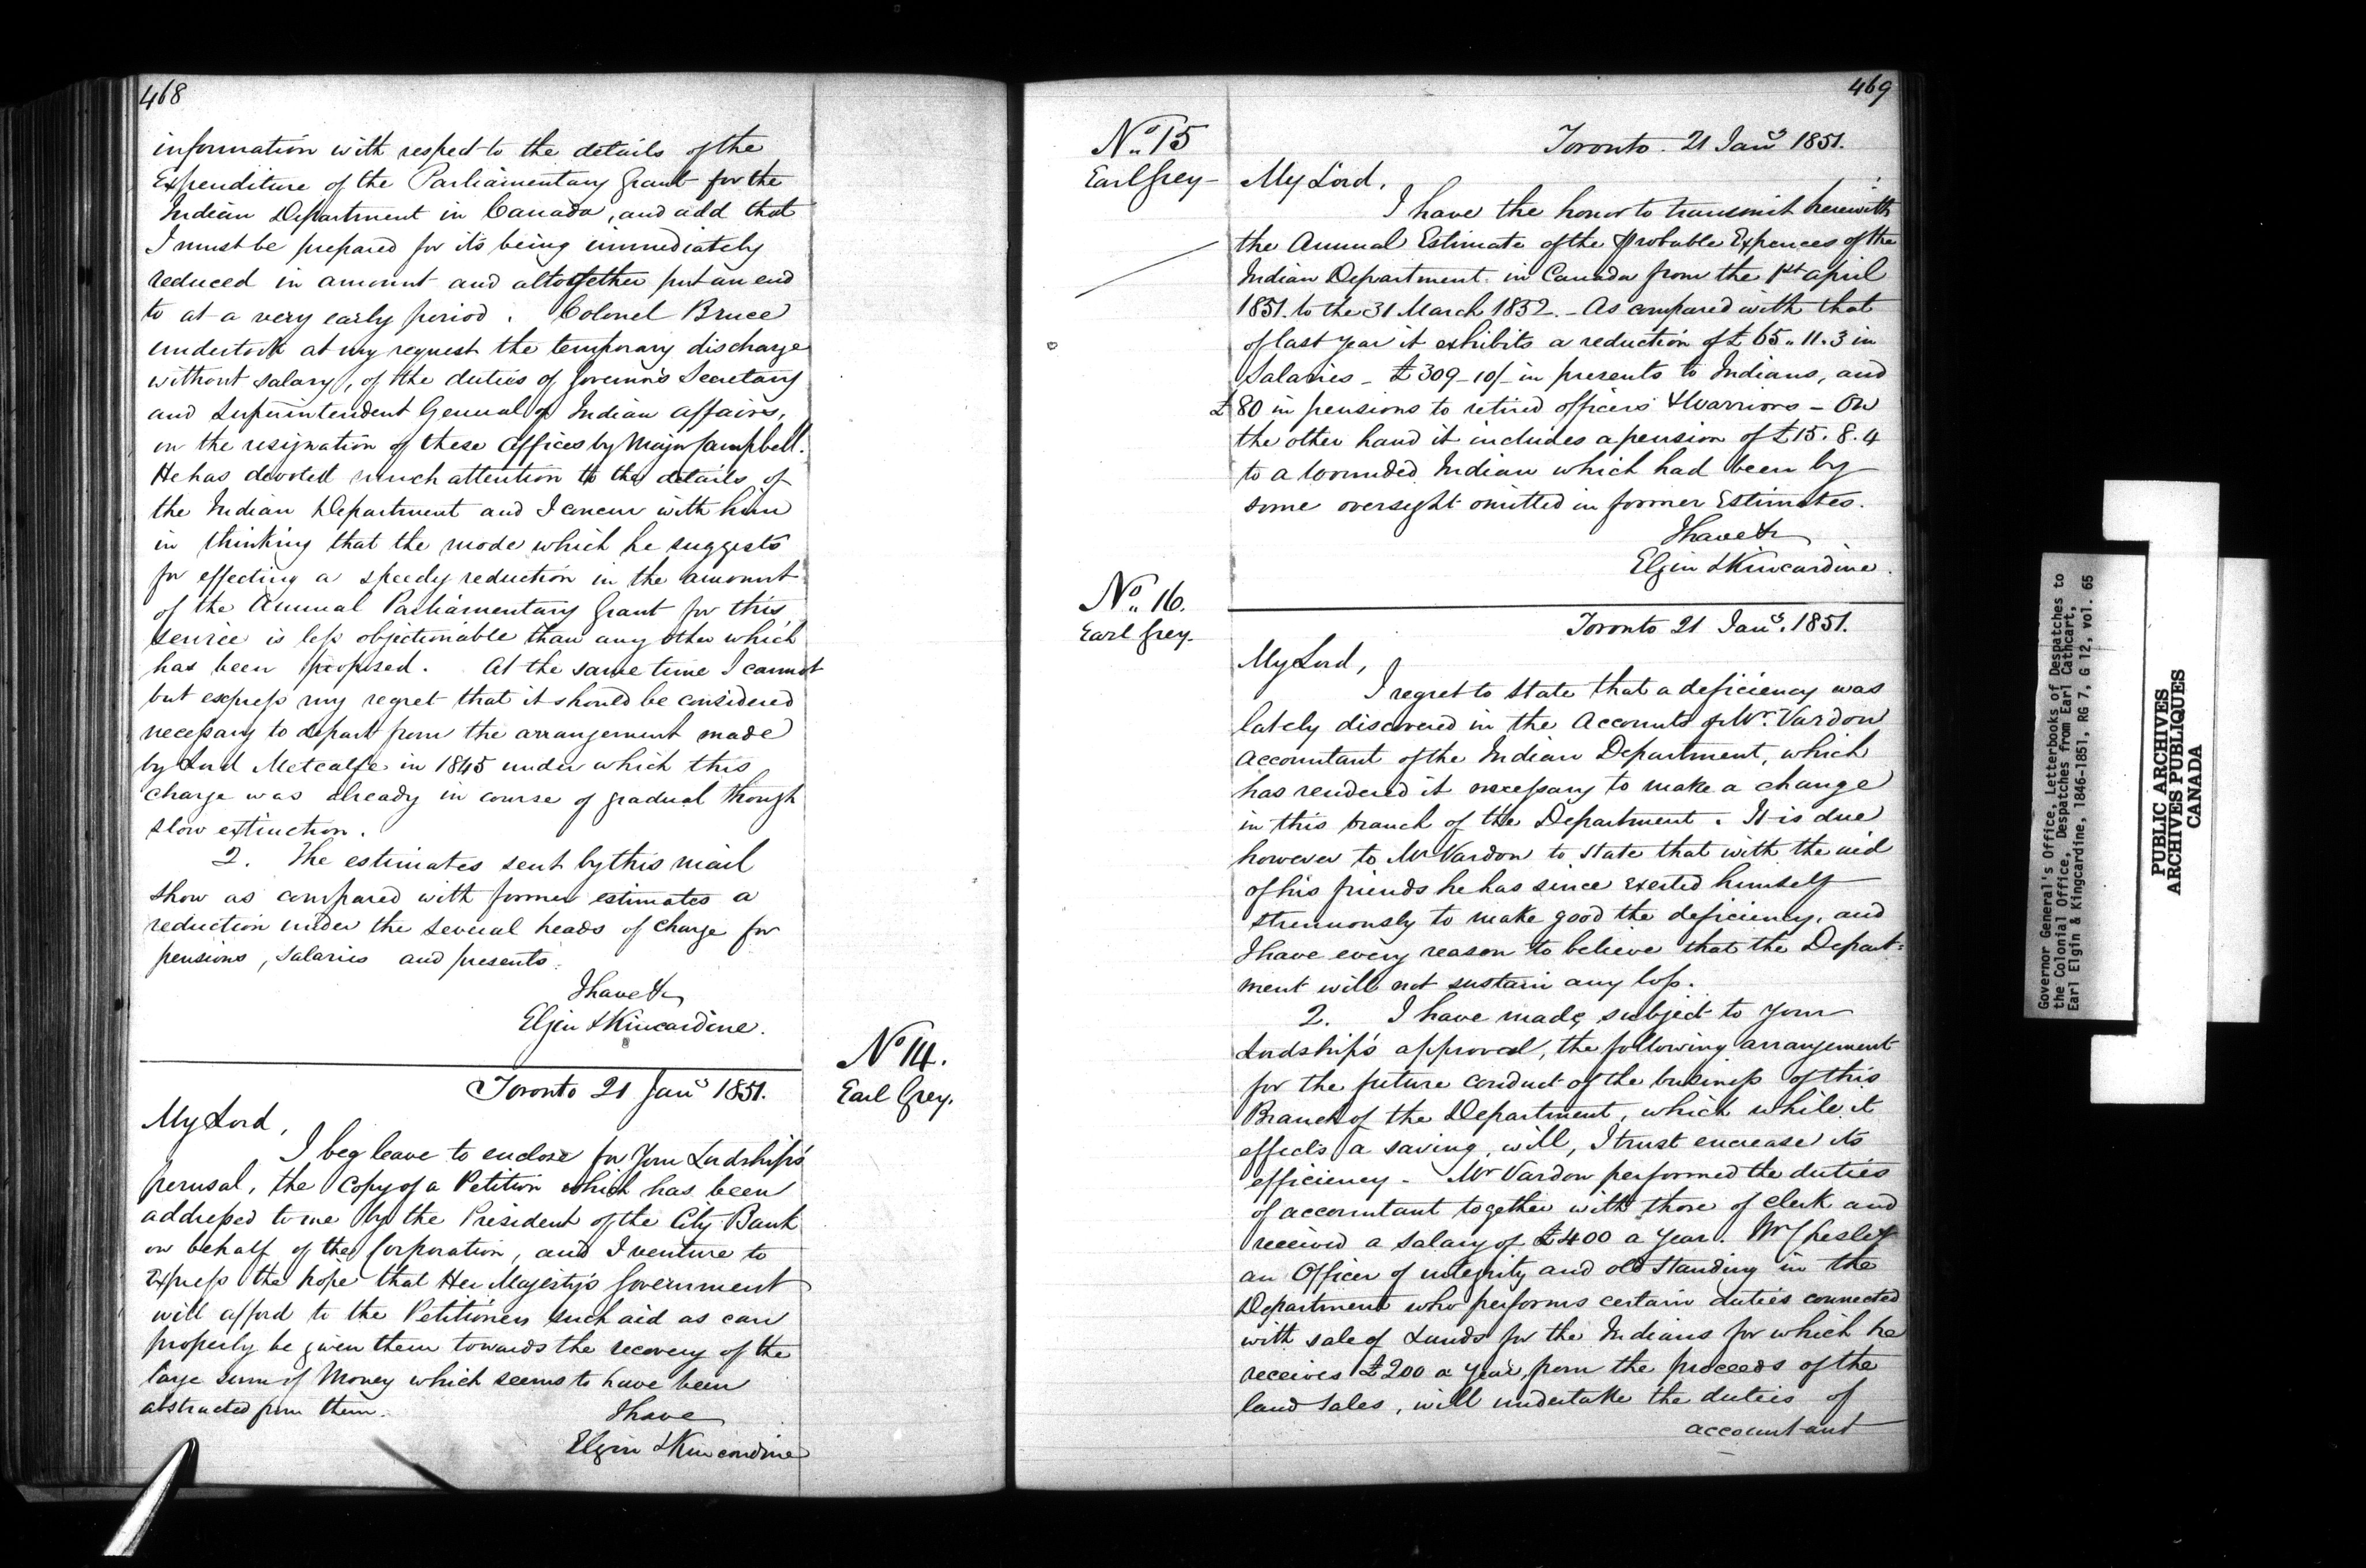 468
information with respect to the details of the
Expenditure of the Parliamentary Grant for the
Indian Department in Canada, and add that
I must be prepared for its being immediately
reduced in amount and altogether put an end
to at a very early period. Colonel Bruce
undertook at my request the temporary discharge
without salary, of the duties of Governor's Secretary
and Superintendent General of Indian Affairs,
on the resignation of these Offices by Major Campbell.
He has devoted much attention to the details of
the Indian Department and I concur with him
in thinking that the mode which he suggests
for effecting a speedy reduction in the amount
of the Annual Parliamentary Grant for this
service is less objectionable than any other which
has been proposed. At the same time I cannot
but express my regret that it should be considered
necessary to depart from the arrangement made
by Lord Metcalfe in 1845 under which this
charge was already in course of gradual though
slow extinction.
2. The estimates sent by this mail
show as compared with former estimates a
reduction under the several heads of charge for
pensions, salaries and presents.
I have &c
Elgin & Kincardine.
No 14.
Earl Grey.
Toronto 21 Jany 1851.
My Lord,
I beg leave to enclose for Your Lordship's
perusal, the Copy of a Petition which has been
addressed to me by the President of the City Bank
on behalf of the Corporation, and I venture to
express the hope that Her Majesty's Government
will afford to the Petitioners such aid as can
properly be given them towards the recovery of the
large sum of Money which seems to have been
abstracted from them.
I have
Elgin & Kincardine
469
No 15
Earl Grey
Toronto. 21 Jany 1851.
My Lord,
I have the honor to transmit herewith
the Annual Estimate of the Probable Expences of the
Indian Department in Canada from the 1st April
1851. to the 31 March 1852. - As compared with that
of last year it exhibits a reduction of £65.11.3 in
Salaries - £309-10/- in presents to Indians, and
£80 in pensions to retired officers & Warriors - On
the other hand it includes a pension of £15.8.4
to a wounded Indian which had been by
some oversight omitted in former Estimates.
I have &c
Elgin & Kincardine.
No 16.
Earl Grey.
Toronto 21 Jany. 1851.
My Lord,
I regret to state that a deficiency was
lately discovered in the Accounts of Mr. Vardon
Accountant of the Indian Department, which
has rendered it necessary to make a change
in this branch of the Department. It is due
however to Mr Vardon to state that with the aid
of his friends he has since exerted himself
strenuously to make good the deficiency, and
I have every reason to believe that the Depart=
ment will not sustain any loss.
2. I have made, subject to Your
Lordship's approval, the following arrangement
for the future conduct of the business of this
Branch of the Department, which while it
effects a saving, will, I trust encrease its
efficiency - Mr Vardon performed the duties
of accountant together with those of clerk and
received a salary of £400 a year. Mr Chesley
an Officer of integrity and old standing in the
Department who performs certain duties connected
with sale of Lands for the Indians for which he
receives £200 a year, from the proceeds of the
land sales, will undertake the duties of
accountant
Governor General's Office, Letterbooks of Despatches to
the Colonial Office, Despatches from Earl Cathcart,
Earl Elgin & Kingcardine, 1846-1851, RG 7, G 12, vol. 65
PUBLIC ARCHIVES
ARCHIVES PUBLIQUES
CANADA